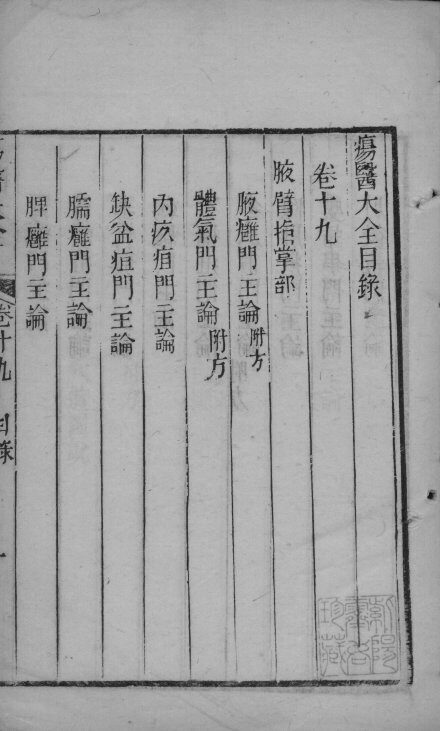 瘍醫大全目錄
卷十九
腋臂指掌部
腋癰門主論附方
體氣門主論附方
內疚疽門主論
缺盆疽門主論
臑癰門主論
脾癰門主論
卷十九 目錄 一
珍藏